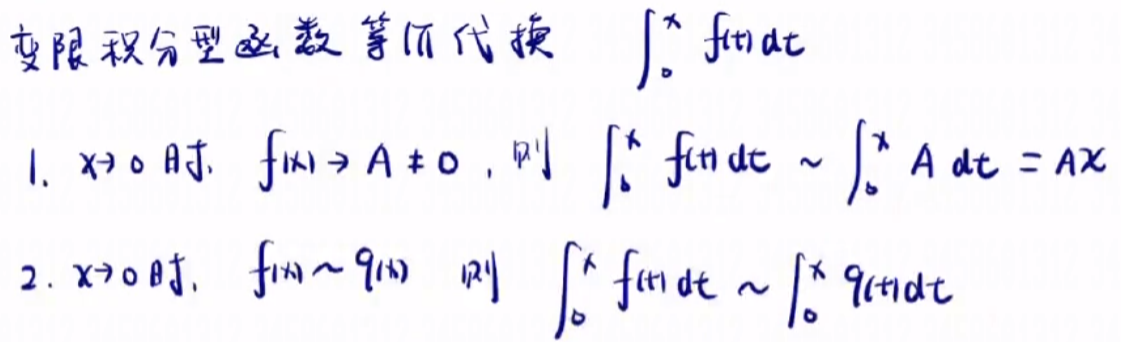 变限积分型函数等价代换 ∫₀ˣ f(t)dt
1. x→0 时, f(x)→A≠0, 则 ∫₀ˣ f(t)dt ~ ∫₀ˣ A dt = Ax
2. x→0时, f(x)~g(x) 则 ∫₀ˣ f(t)dt ~ ∫₀ˣ g(t)dt